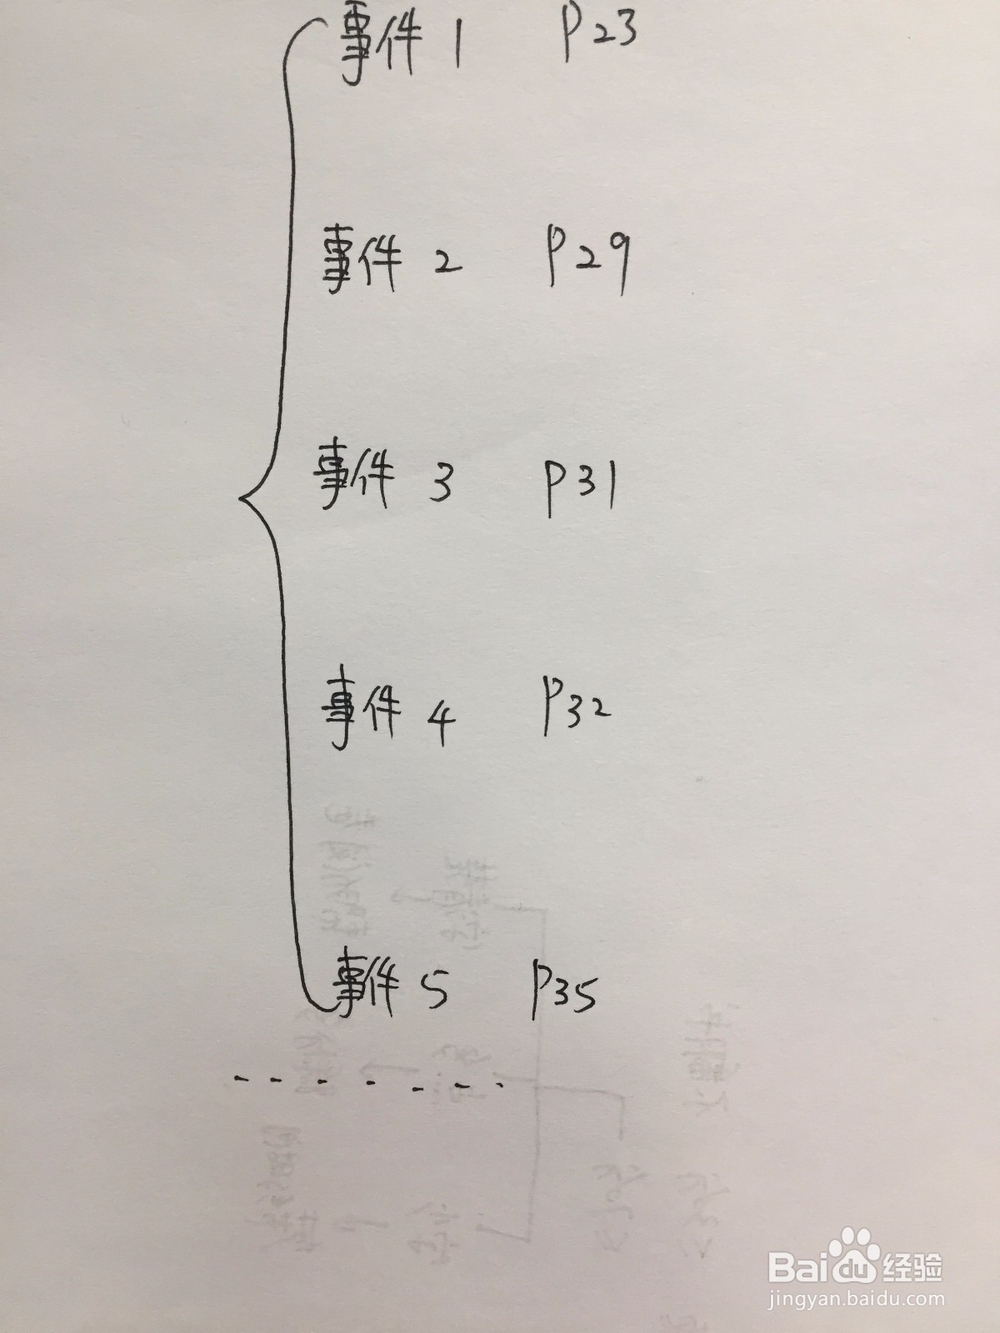 事件 1 P23
事件 2 P29
事件 3 P31
事件 4 P32
事件 5 P35
Baidu 经验
jingyan.baidu.com